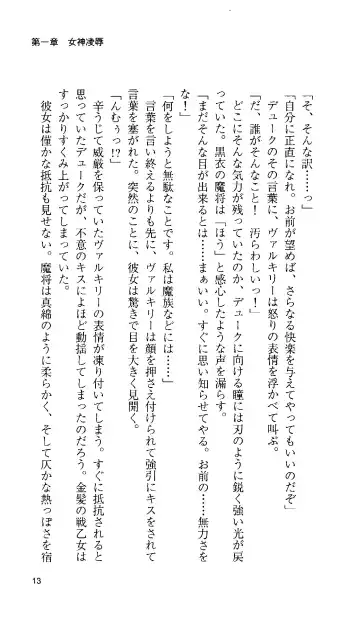 第一章　女神凌辱
「そ、そんな訳……っ」
「自分に正直になれ。お前が望めば、さらなる快楽を与えてやってもいいのだぞ」
デュークのその言葉に、ヴァルキリーは怒りの表情を浮かべて叫ぶ。
「だ、誰がそんなこと！　汚らわしいっ！」
どこにそんな気力が残っていたのか、デュークに向ける瞳には刃のように鋭く強い光が戻
っていた。黒衣の魔将は「ほう」と感心したような声を漏らす。
「まだそんな目が出来るとは……まぁいい。すぐに思い知らせてやる。お前の……無力さを
な！」
「何をしようと無駄なことです。私は魔族などには……」
言葉を言い終えるよりも先に、ヴァルキリーは顔を押さえ付けられて強引にキスをされて
言葉を塞がれた。突然のことに、彼女は驚きで目を大きく見開く。
「んむぅっ!?」
辛うじて威厳を保っていたヴァルキリーの表情が凍り付いてしまう。すぐに抵抗されると
思っていたデュークだが、不意のキスによほど動揺してしまったのだろう。金髪の戦乙女は
すっかりすくみ上がってしまっていた。
彼女は僅かな抵抗も見せない。魔将は真綿のように柔らかく、そして仄かな熱っぽさを宿
13